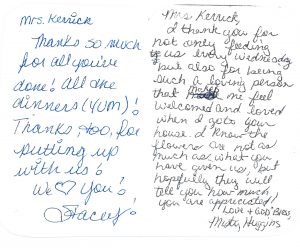 Mrs. Kerrick
Thanks so much
for all you've
done! All the
dinners (YUM)!
Thanks, too, for
putting up
with us!
We ♡ You!
Stacey!
Mrs Kerrick,
I thank you for
not only feeding
us every wednesday
but also for being
such a loving person
that makes me feel
welcomed and loved
when I go to your
house. I know the
flowers are not as
much as what you
have given us, but
hopefully they will
tell you how much
you are appreciated!
Love + God Bless,
Misty Huggins